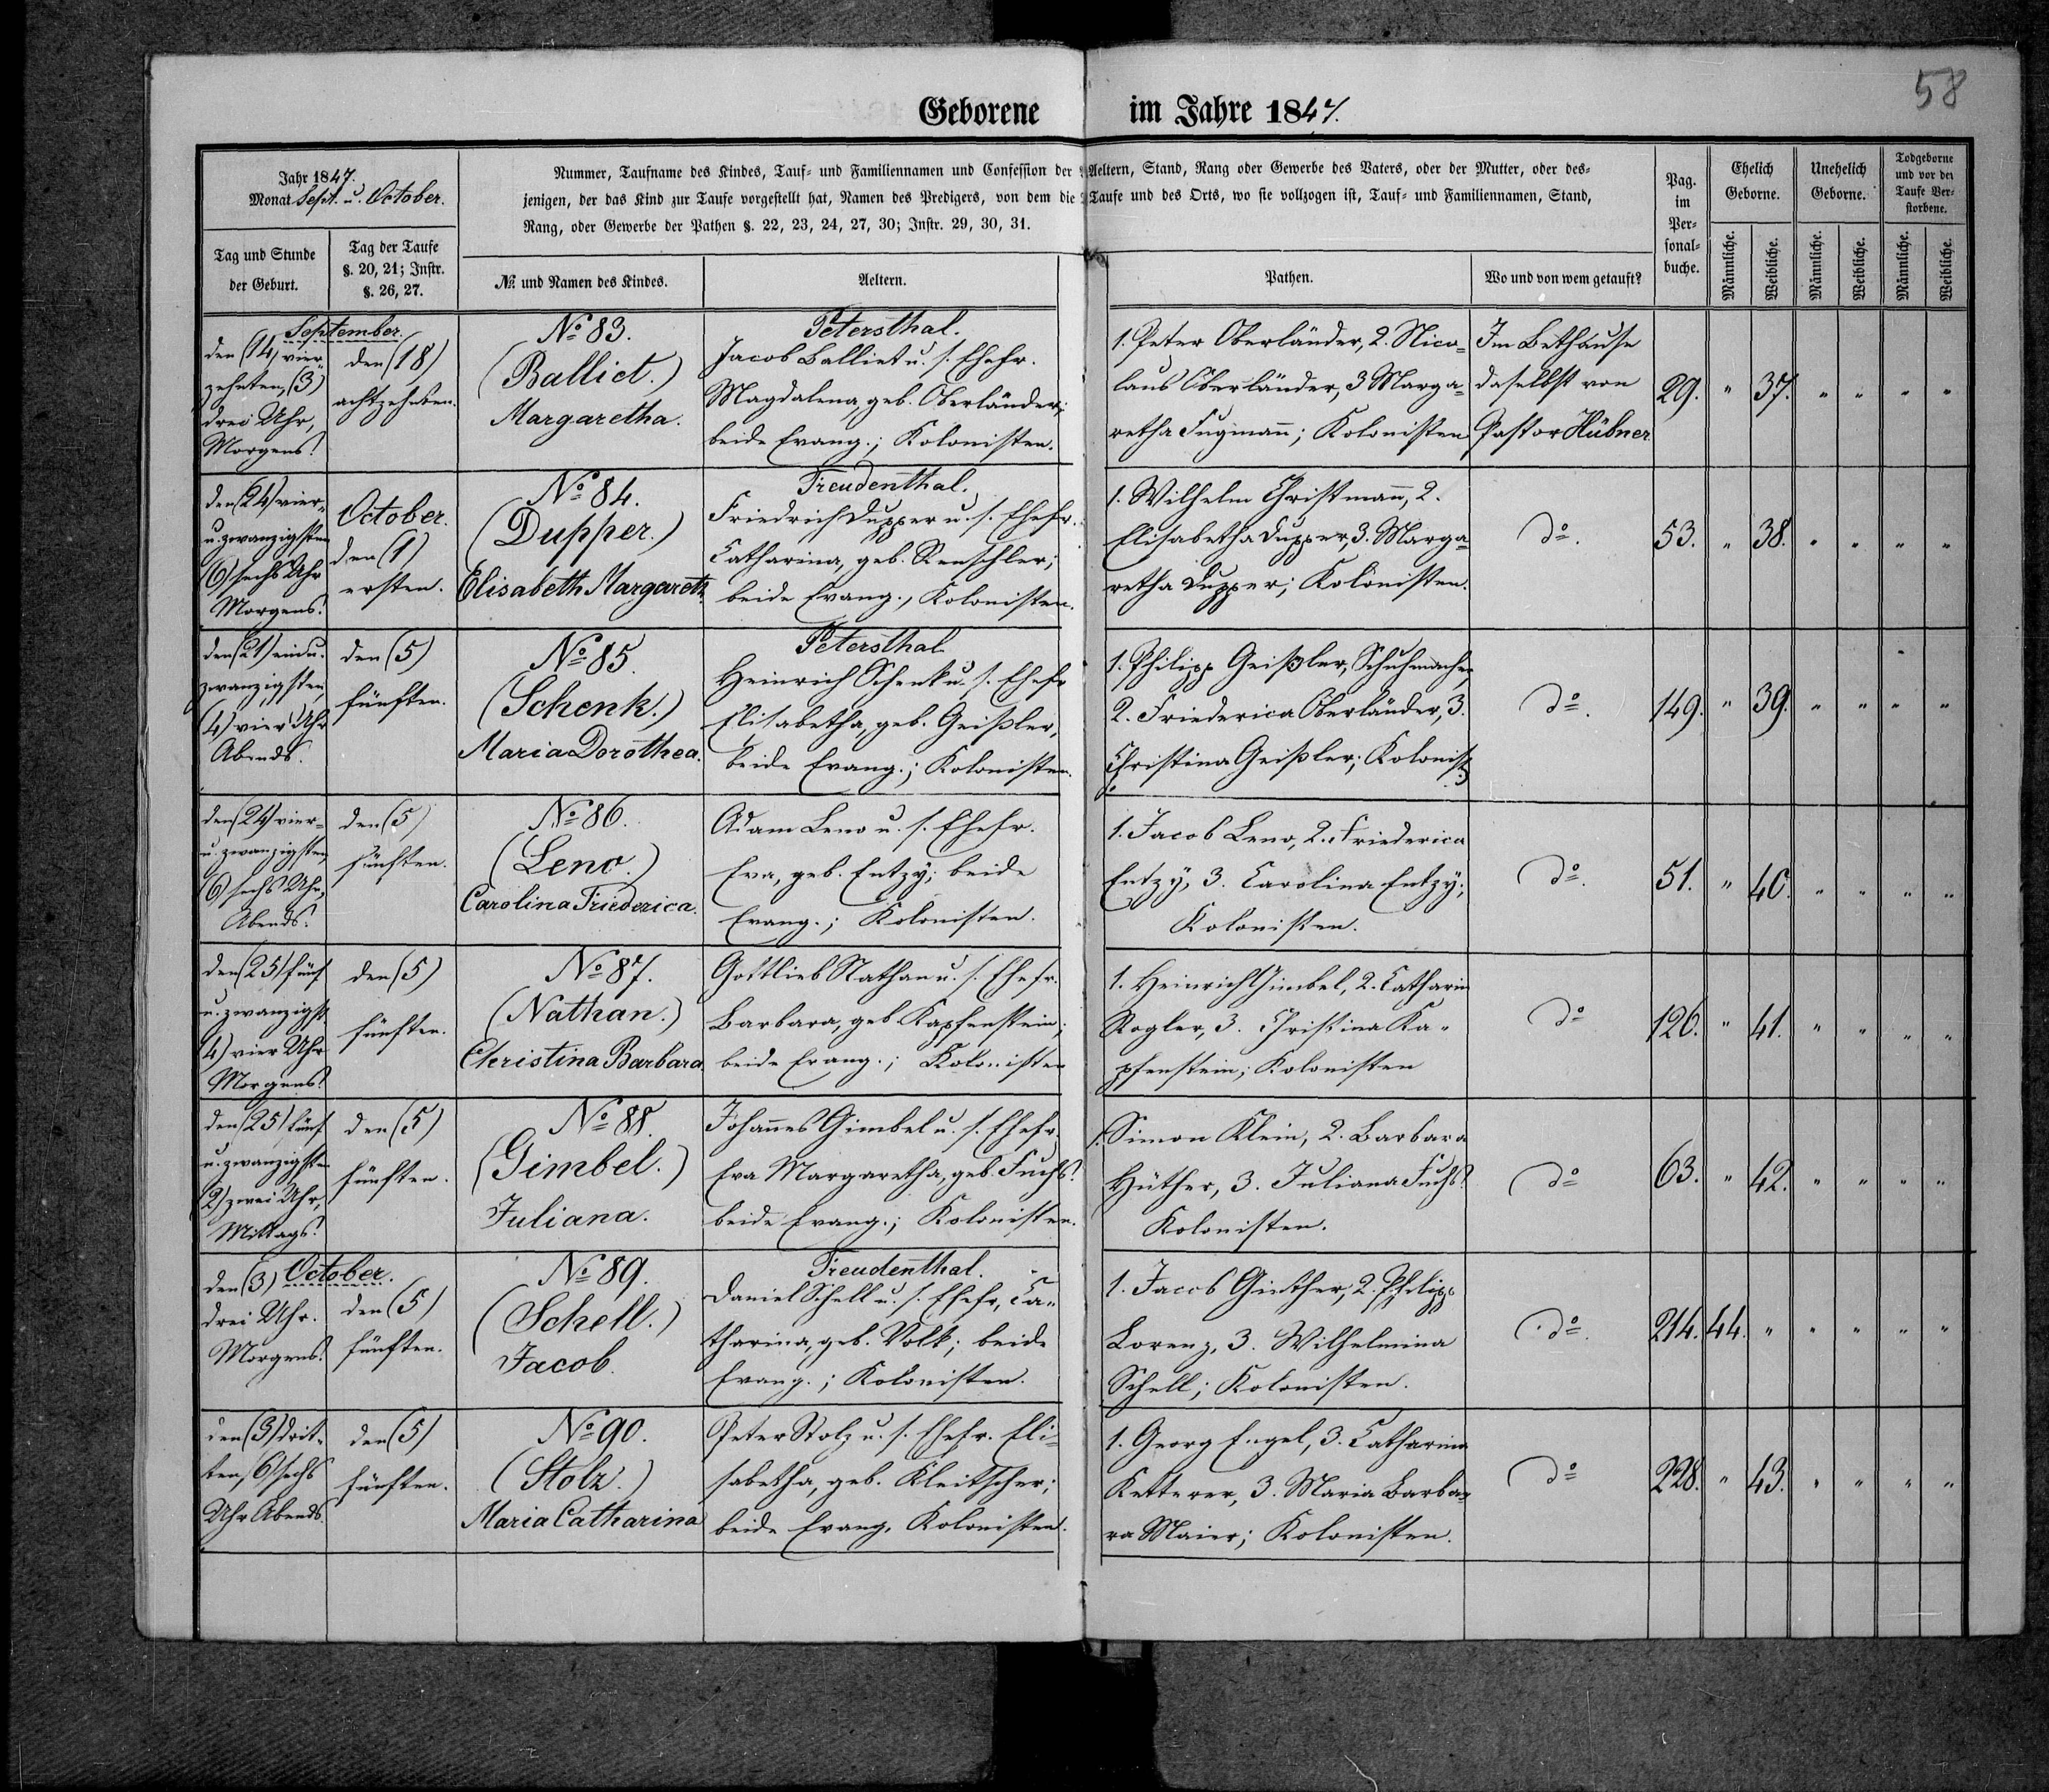 58
Geborene im Jahre 1847.
Jahr 1847.
Monat Sept. u. October.
Nummer, Taufname des Kindes, Tauf- und Familiennamen und Confession der Aeltern, Stand, Rang oder Gewerbe des Vaters, oder der Mutter, oder des-
jenigen, der das Kind zur Taufe vorgestellt hat, Namen des Predigers, von dem die Taufe und des Orts, wo sie vollzogen ist, Tauf- und Familiennamen, Stand,
Rang, oder Gewerbe der Pathen §. 22, 23, 24, 27, 30; Instr. 29, 30, 31.
Tag und Stunde
der Geburt.
Tag der Taufe
§. 20, 21; Instr.
§. 26, 27.
№ und Namen des Kindes.
Aeltern.
Pathen.
Wo und von wem getauft?
Pag.
im
Per-
sonal-
buche.
Ehelich
Geborne.
Unehelich
Geborne.
Todgeborne
und vor der
Taufe Ver-
storbene.
Männliche.
Weibliche.
Männliche.
Weibliche.
Männliche.
Weibliche.
September.
den (14) vier-
zehnten, (3)
drei Uhr,
Morgens.
den (18)
achtzehnten.
№ 83.
(Balliet.)
Margaretha.
Petersthal.
Jacob Balliet u. s. Ehefr.
Magdalena, geb. Oberländer;
beide Evang.; Kolonisten.
1. Peter Oberländer, 2. Nico-
laus Oberländer, 3 Marga-
retha Fugmann; Kolonisten
Im Bethause
daselbst von
Pastor Hübner
29. " 37. " " " "
den (24) vier-
u. zwanzigsten
(6) sechs Uhr
Morgens.
October.
den (1)
ersten.
№ 84.
(Dupper.)
Elisabeth Margareth.
Freudenthal.
Friedrich Dupper u. s. Ehefr.
Catharina, geb. Renschler;
beide Evang., Kolonisten.
1. Wilhelm Christmann, 2.
Elisabetha Dupper, 3. Marga-
retha Dupper; Kolonisten.
do.
53. " 38. " " " "
den (21) ein u.
zwanzigsten
(4) vier Uhr
Abends.
den (5)
fünften.
№ 85.
(Schenk.)
Maria Dorothea.
Petersthal
Heinrich Schenk u. s. Ehefr
Elisabetha, geb. Geißler,
beide Evang.; Kolonisten.
1. Philipp Geißler, Schuhmacher
2. Friederica Oberländer, 3.
Christina Geißler; Kolonist.
do.
149. " 39. " " " "
den (24) vier-
u. zwanzigsten
(6) sechs Uhr,
Abends.
den (5)
fünften.
№ 86.
(Leno.)
Carolina Friederica.
Adam Leno u. s. Ehefr.
Eva, geb. Entzy; beide
Evang.; Kolonisten.
1. Jacob Leno, 2. Friederica
Entzy, 3. Carolina Entzy;
Kolonisten.
do.
51. " 40. " " " "
den (25) fünf
u. zwanzigst.
(4) vier Uhr
Morgens.
den (5)
fünften.
№ 87.
(Nathan.)
Christina Barbara
Gottlieb Nathan u. s. Ehefr.
Barbara, geb Kapfenstein;
beide Evang.; Kolonisten
1. Heinrich Gimbel, 2. Catharin
Rogler, 3. Christina Ka-
pfenstein; Kolonisten
do
126. " 41. " " " "
den (25) fünf
u. zwanzigsten
(2) zwei Uhr,
Mittags.
den (5)
fünften.
№ 88.
(Gimbel.)
Juliana.
Johannes Gimbel u. s. Ehefr.
Eva Margaretha, geb. Fuchs.
beide Evang.; Kolonisten.
1. Simon Klein, 2. Barbara
Hüther, 3. Juliana Fuchs.
Kolonisten.
do
63. " 42. " " " "
October.
den (3)
drei Uhr.
Morgens.
den (5)
fünften.
№ 89.
(Schell.)
Jacob.
Freudenthal.
Daniel Schell u. s. Ehefr, Ca-
tharina, geb. Volk; beide
Evang.; Kolonisten.
1. Jacob Ginther, 2. Philipp
Lorenz, 3. Wilhelmina
Schell; Kolonisten.
do.
214. 44. " " " " "
den (3) drit-
ten, (6) sechs
Uhr Abends.
den (5)
fünften.
№ 90.
(Stolz.)
Maria Catharina
Peter Stolz u. s. Ehefr. Eli-
sabetha, geb. Kleitscher;
beide Evang. Kolonisten.
1. Georg Engel, 3. Catharina
Ketterer, 3. Maria Barba-
ra Maier; Kolonisten.
do
228. " 43. " " " "